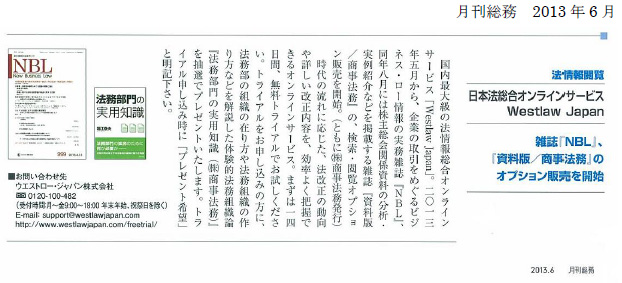 月刊総務 2013年6月
法情報閲覧
日本法総合オンラインサービス
Westlaw Japan
雑誌『NBL』、
『資料版／商事法務』の
オプション販売を開始
国内最大級の法情報総合オンライン
サービス『Westlaw Japan』。二〇一三
年五月から、企業の取引をめぐるビジ
ネス・ロー情報の実務雑誌『NBL』、
同年八月には株主総会関係資料の分析・
実例紹介などを掲載する雑誌『資料版
／商事法務』の、検索・閲覧オプショ
ン販売を開始。（ともに㈱商事法務発行）
時代の流れに応じた、法改正の動向
や詳しい改正内容を、効率よく把握で
きるオンラインサービス。まずは一四
日間、無料トライアルでお試しくださ
い。トライアルをお申し込みの方に、
法務部の組織の在り方や法務組織の作
り方などを解説した体験的法務組織論
『法務部門の実用知識（㈱商事法務）』
を抽選でプレゼントいたします。トラ
イアル申し込み時に「プレゼント希望」
と明記下さい。
NBL
New Business Law
999
法務部門の
実用知識
■お問い合わせ先
ウエストロー・ジャパン株式会社
0120-100-482
（受付時間:月～金9:00～18:00 年末年始、祝祭日を除く）
E-mail: support@westlawjapan.com
http://www.westlawjapan.com/freetrial/
2013.6 月刊総務